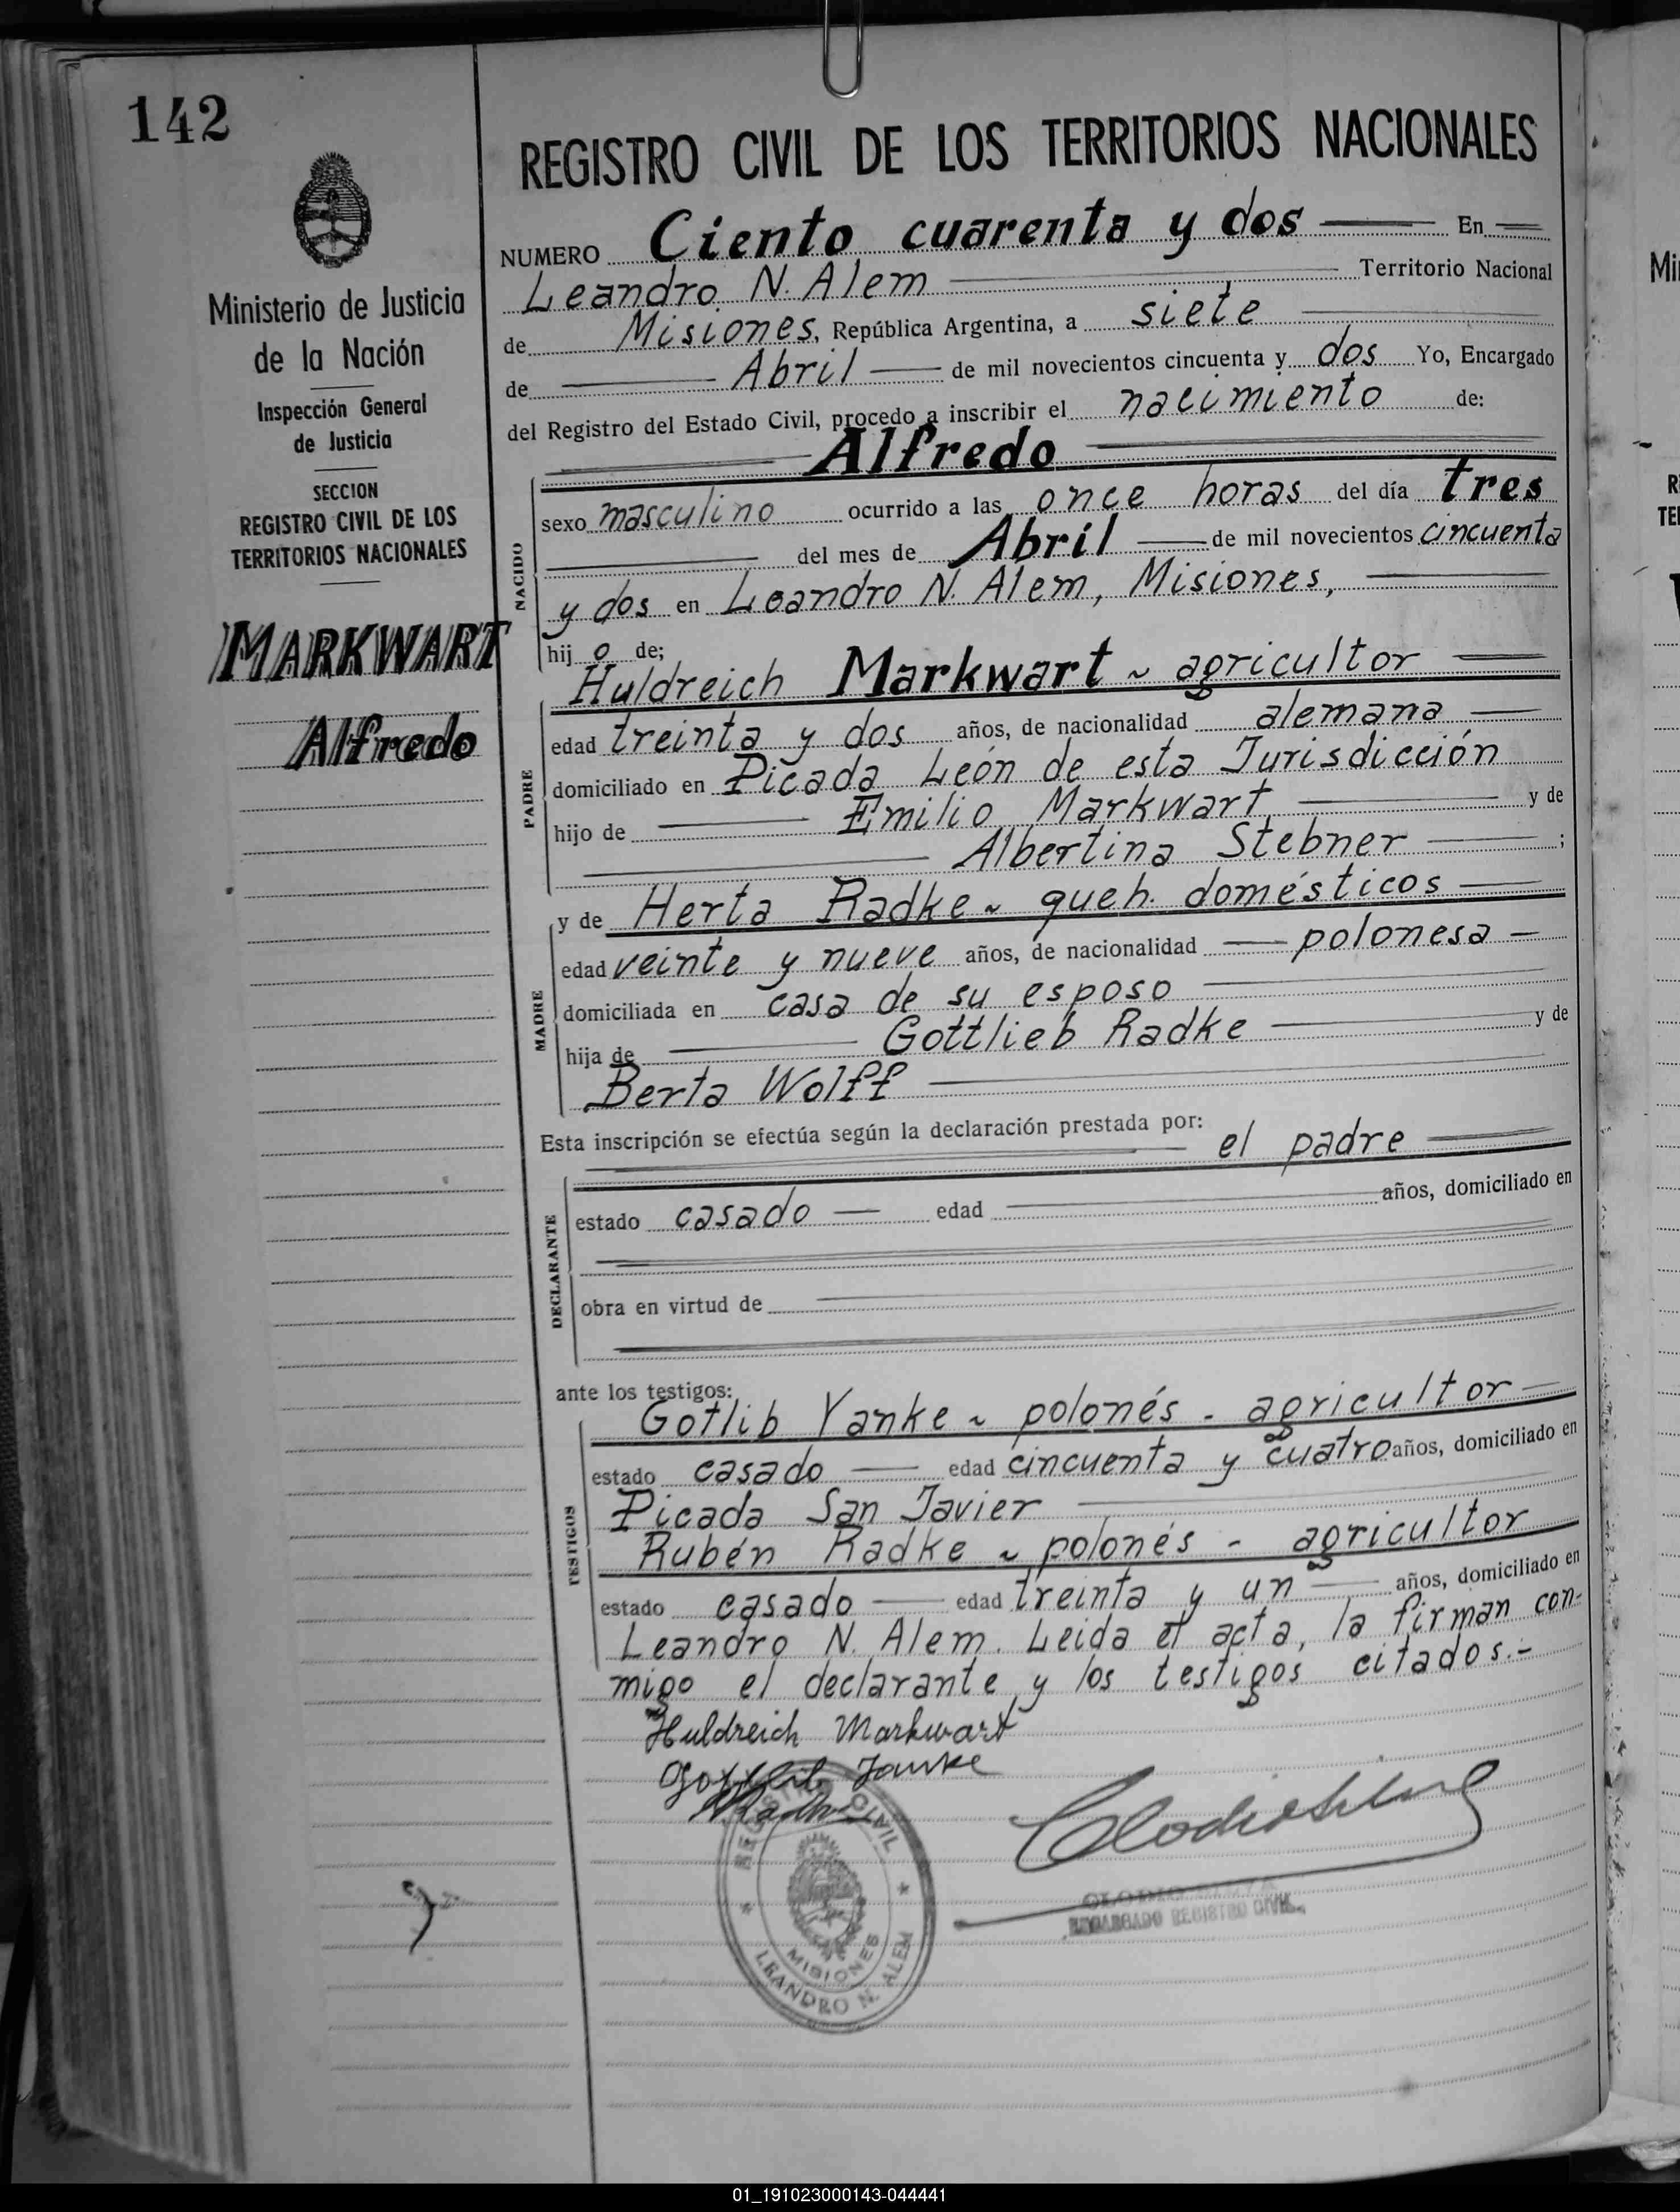 142
Ministerio de Justicia
de la Nación
Inspección General
de Justicia
SECCION
REGISTRO CIVIL DE LOS
TERRITORIOS NACIONALES
MARKWART
Alfredo
REGISTRO CIVIL DE LOS TERRITORIOS NACIONALES
NUMERO Ciento cuarenta y dos En
Leandro N. Alem Territorio Nacional
de Misiones, República Argentina, a siete
de Abril de mil novecientos cincuenta y dos Yo, Encargado
del Registro del Estado Civil, procedo a inscribir el nacimiento de:
Alfredo
NACIDO
sexo masculino ocurrido a las once horas del día tres
del mes de Abril de mil novecientos cincuenta
y dos en Leandro N. Alem, Misiones,
hij o de;
PADRE
Huldreich Markwart ~ agricultor
edad treinta y dos años, de nacionalidad alemana
domiciliado en Picada León de esta Jurisdicción
hijo de Emilio Markwart y de
Albertina Stebner ;
MADRE
y de Herta Radke ~ queh. domésticos
edad veinte y nueve años, de nacionalidad polonesa
domiciliada en casa de su esposo
hija de Gottlieb Radke y de
Berta Wolff
Esta inscripción se efectúa según la declaración prestada por:
el padre
DECLARANTE
estado casado edad años, domiciliado en
obra en virtud de
ante los testigos:
TESTIGOS
Gotlib Yanke ~ polonés - agricultor
estado casado edad cincuenta y cuatro años, domiciliado en
Picada San Javier
Rubén Radke ~ polonés - agricultor
estado casado edad treinta y un años, domiciliado en
Leandro N. Alem. Leida el acta, la firman con-
migo el declarante y los testigos citados.-
Huldreich Markwart
Gottlib Janke
REGISTRO CIVIL
MISIONES
LEANDRO N. ALEM
CLODIO
ENCARGADO REGISTRO CIVIL
01_191023000143-044441